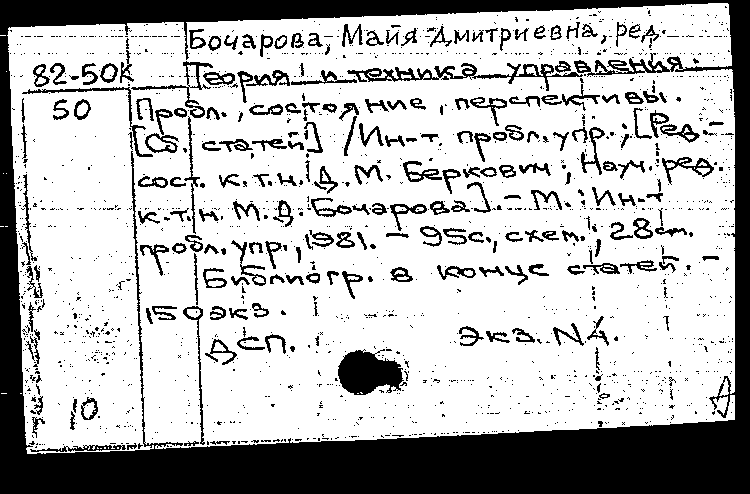 Бочарова, Майя Дмитриевна, ред.
82-50К Теория и техника управления.
50 Пробл., состояние, перспективы.
[Сб. статей] / Ин-т пробл. упр.; [Ред.-
сост. к.т.н. Д.М. Беркович; Науч. ред.
к.т.н. М.Д. Бочарова]. - М.: Ин-т
пробл. упр., 1981. - 95с., схем.; 28см.
Библиогр. в конце статей. -
150экз.
ДСП. экз. N4.
10 А